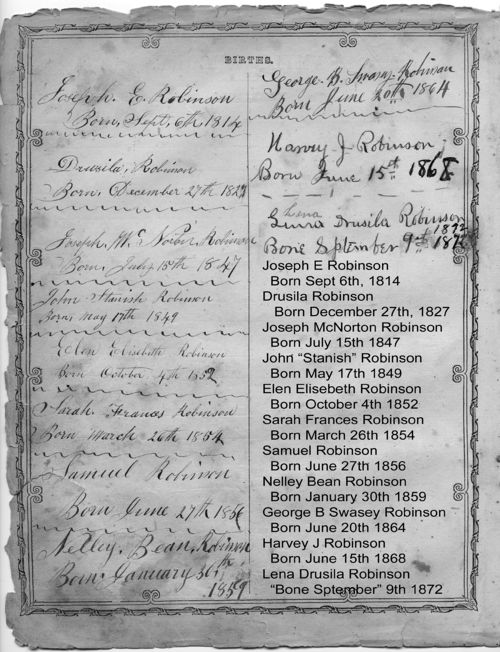 BIRTHS.
Joseph. E. Robinson
Born, Sept, 6th, 1814
Drusila, Robinson
Born, December 27th 1827
Joseph, Mc Norber, Robinson
Born, July 15th 1847
John Stanish Robinson
Born, May 17th 1849
Elen Elisebeth Robinson
Born October 4th 1852
Sarah. Frances Robinson
Born March 26th 1854
Samuel Robinson
Born June 27th 1856
Nelley, Bean, Robinson
Born, January 30th
1859
George. B. Swasey. Robinson
Born June 20th 1864
Harvey J Robinson
Born June 15th 1868
Lena
Drusila Robinson
1872
Bone Sptember 9th
Joseph E Robinson
Born Sept 6th, 1814
Drusila Robinson
Born December 27th, 1827
Joseph McNorton Robinson
Born July 15th 1847
John “Stanish” Robinson
Born May 17th 1849
Elen Elisebeth Robinson
Born October 4th 1852
Sarah Frances Robinson
Born March 26th 1854
Samuel Robinson
Born June 27th 1856
Nelley Bean Robinson
Born January 30th 1859
George B Swasey Robinson
Born June 20th 1864
Harvey J Robinson
Born June 15th 1868
Lena Drusila Robinson
“Bone Sptember” 9th 1872